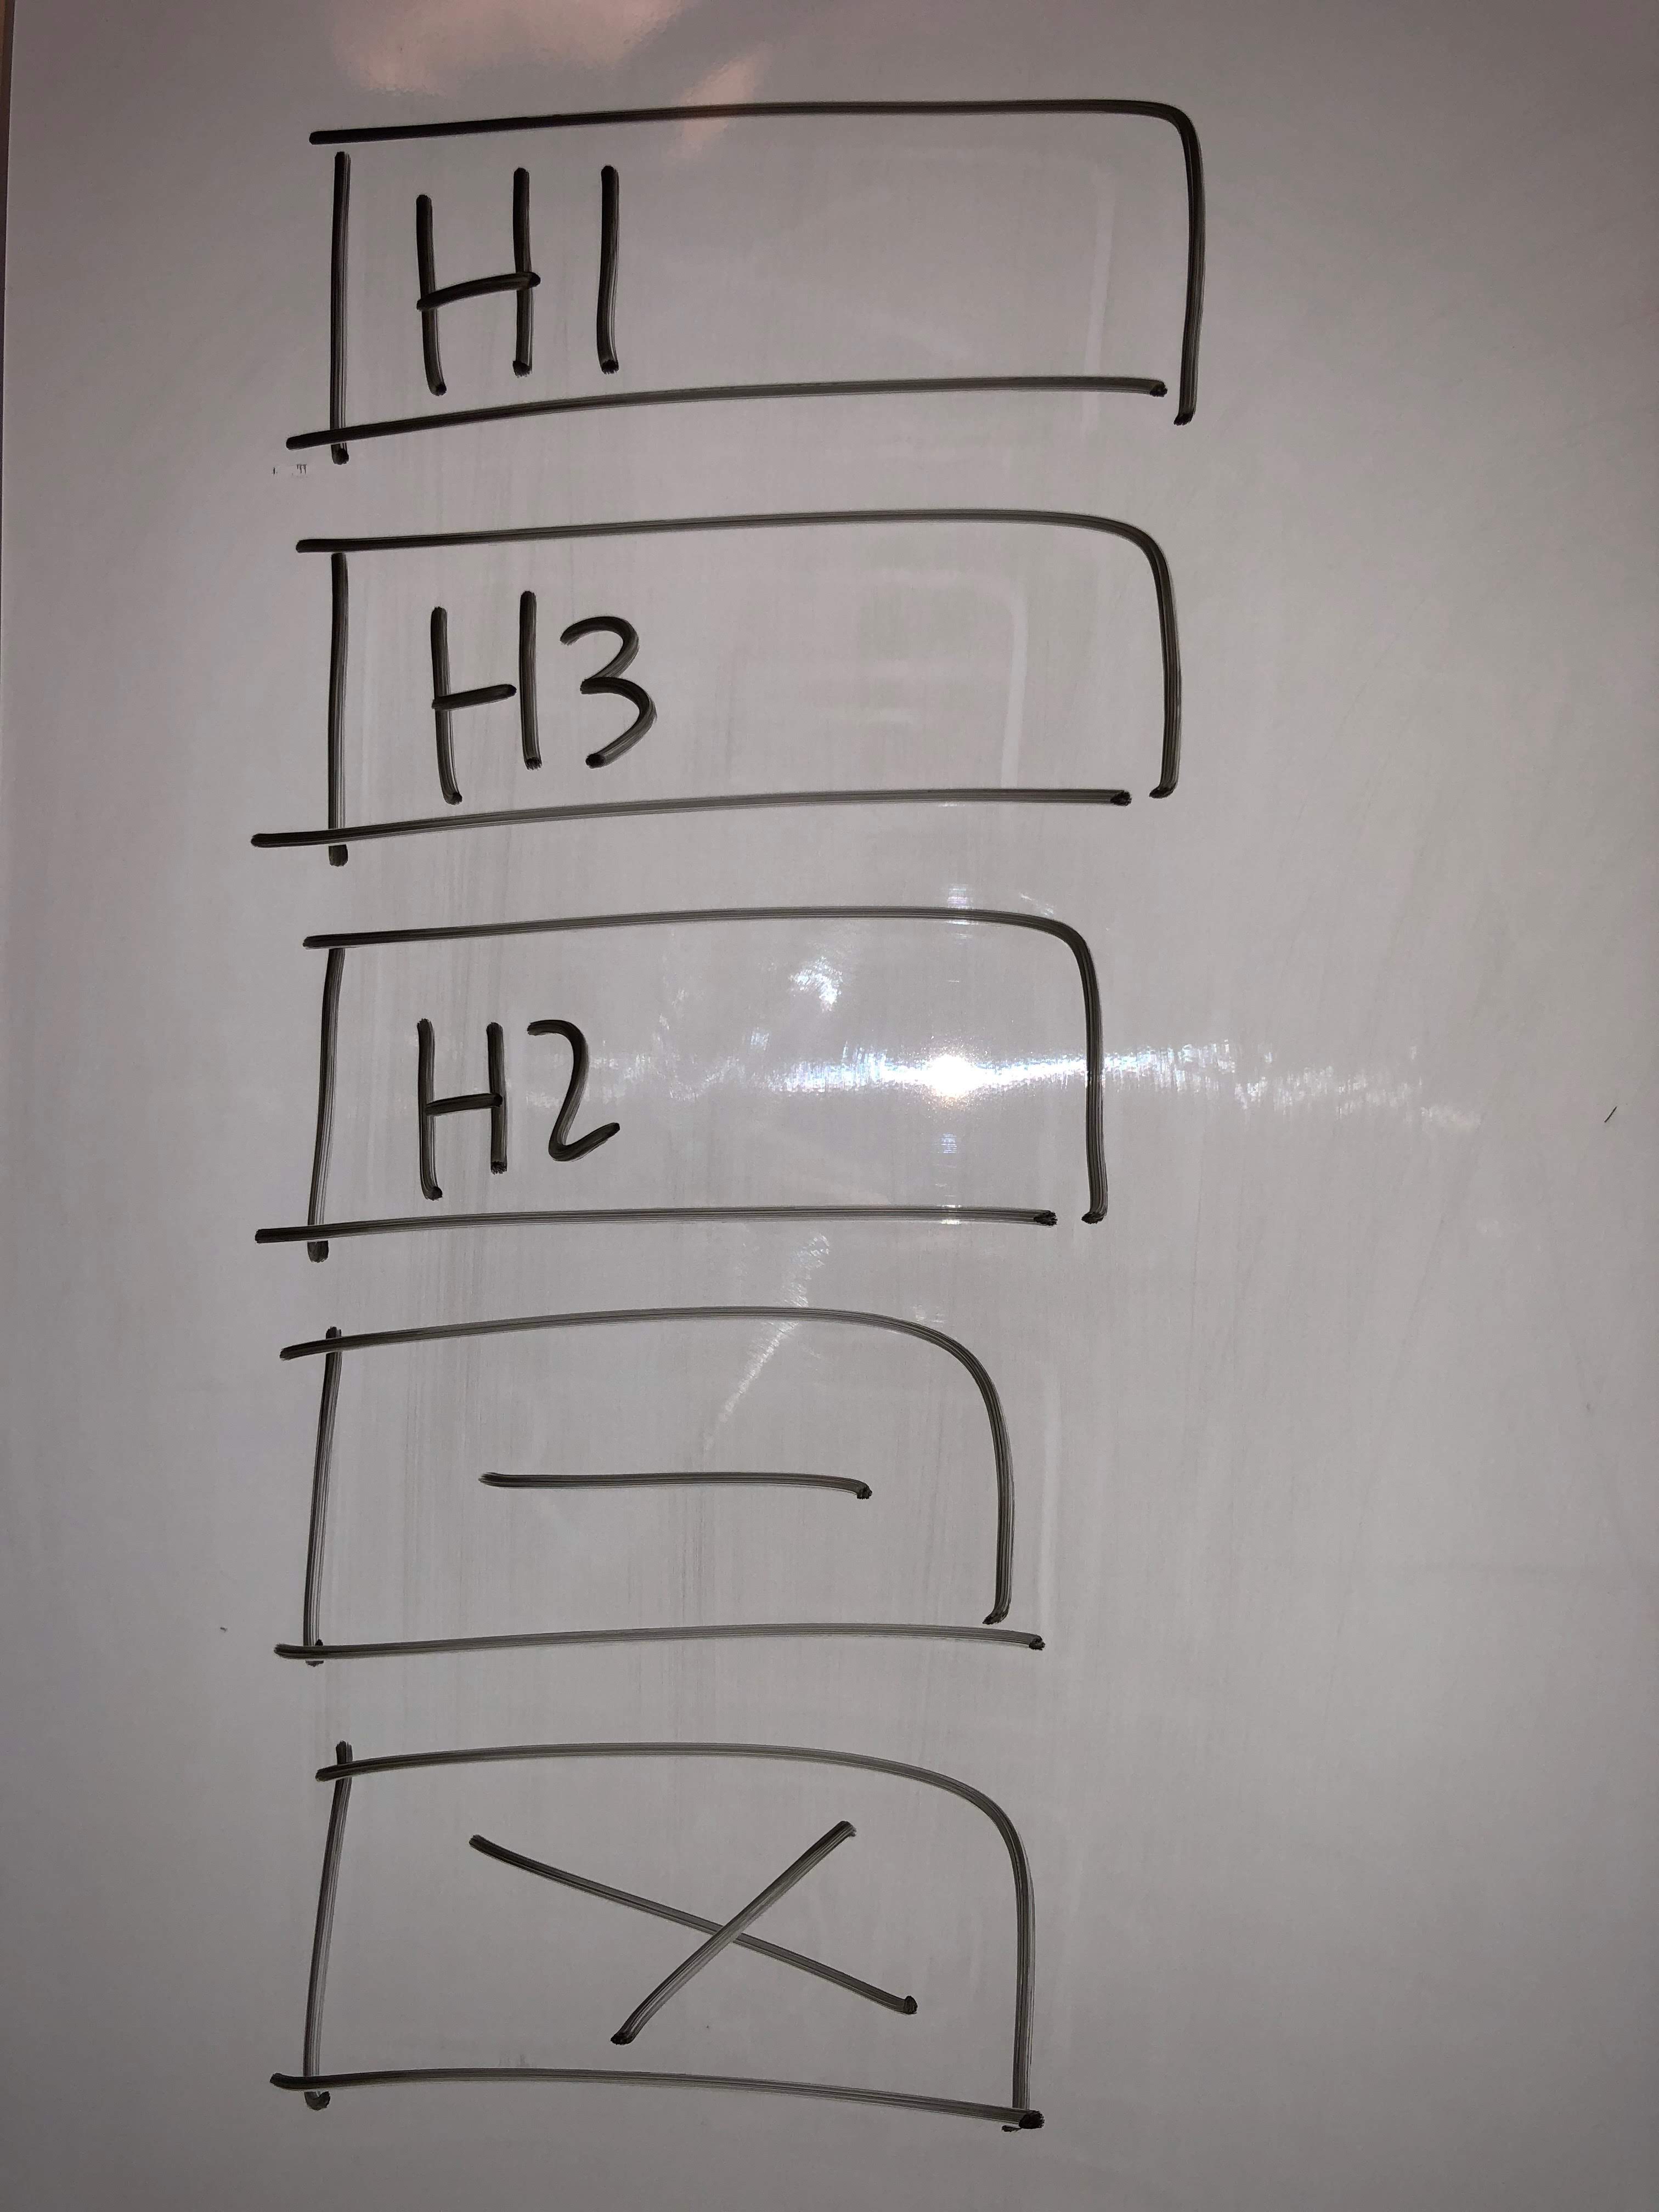 H1
H3
H2